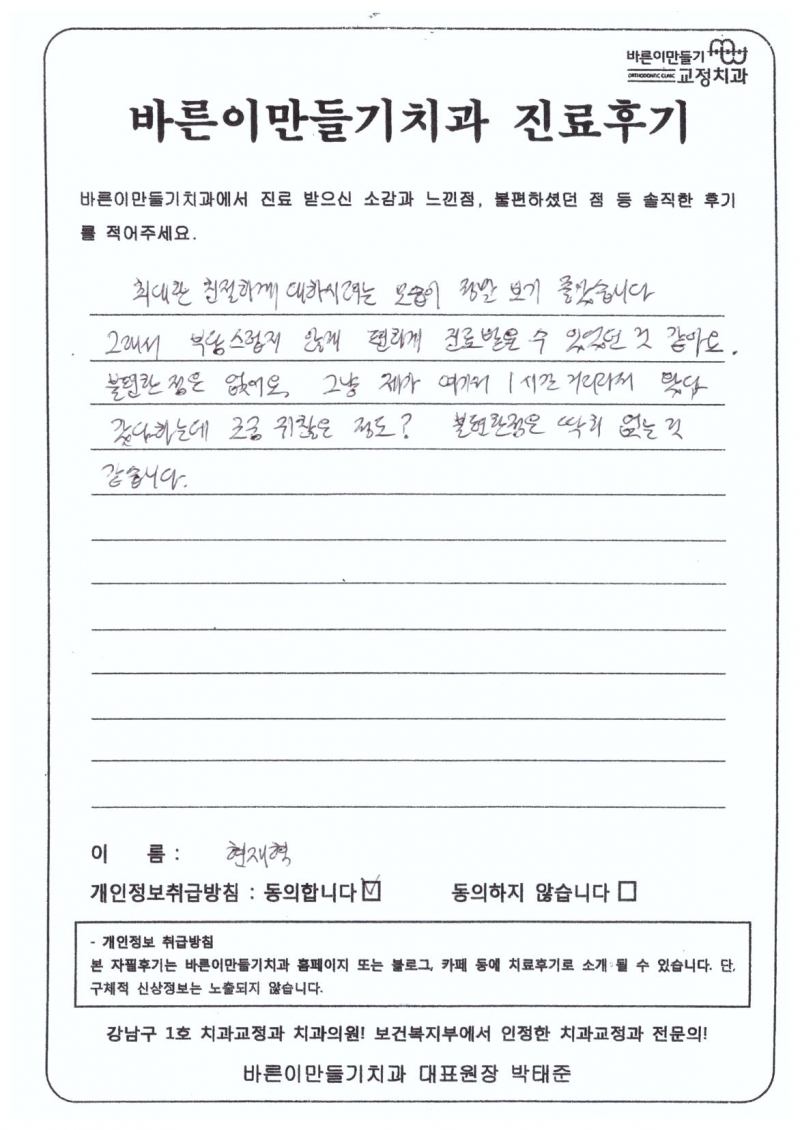 바른이만들기
ORTHODONTIC CLINIC 교정치과
바른이만들기치과 진료후기
바른이만들기치과에서 진료 받으신 소감과 느낀점, 불편하셨던 점 등 솔직한 후기
를 적어주세요.
최대한 친절하게 대하시려는 모습이 정말 보기 좋았습니다
그래서 부담스럽지 않게 편하게 진료받을 수 있었던 것 같아요.
불편한 점은 없어요. 그냥 제가 여기서 1시간 거리라서 왔다
갔다하는데 조금 귀찮은 정도? 불편한점은 딱히 없는 것
같습니다.
이 름 : 현재혁
개인정보취급방침 : 동의합니다 ☑ 동의하지 않습니다 ☐
- 개인정보 취급방침
본 자필후기는 바른이만들기치과 홈페이지 또는 블로그, 카페 등에 치료후기로 소개 될 수 있습니다. 단,
구체적 신상정보는 노출되지 않습니다.
강남구 1호 치과교정과 치과의원! 보건복지부에서 인정한 치과교정과 전문의!
바른이만들기치과 대표원장 박태준